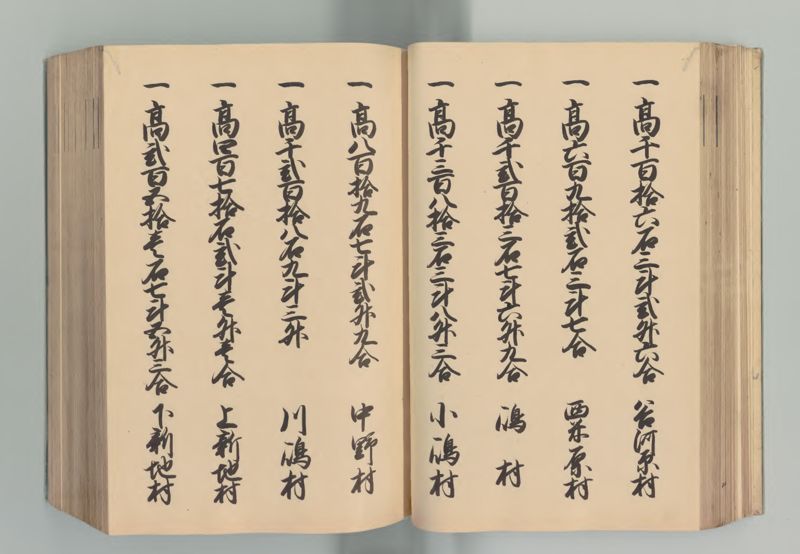 一高千百拾六石三斗弐升六合 谷河原村
一高六百九拾弐石三斗七合 西 原村
一高千弐百拾三石七斗六升九合 嶋村
一高千三百八拾三石三斗八升三合 小嶋村
一高八百拾九石七斗弐升九合 中野村
一高千弐百拾八石九斗三升 川嶋村
一高四百七拾石弐斗壱升壱合 上新地村
一高弐百五拾壱石七斗五升三合 下新地村